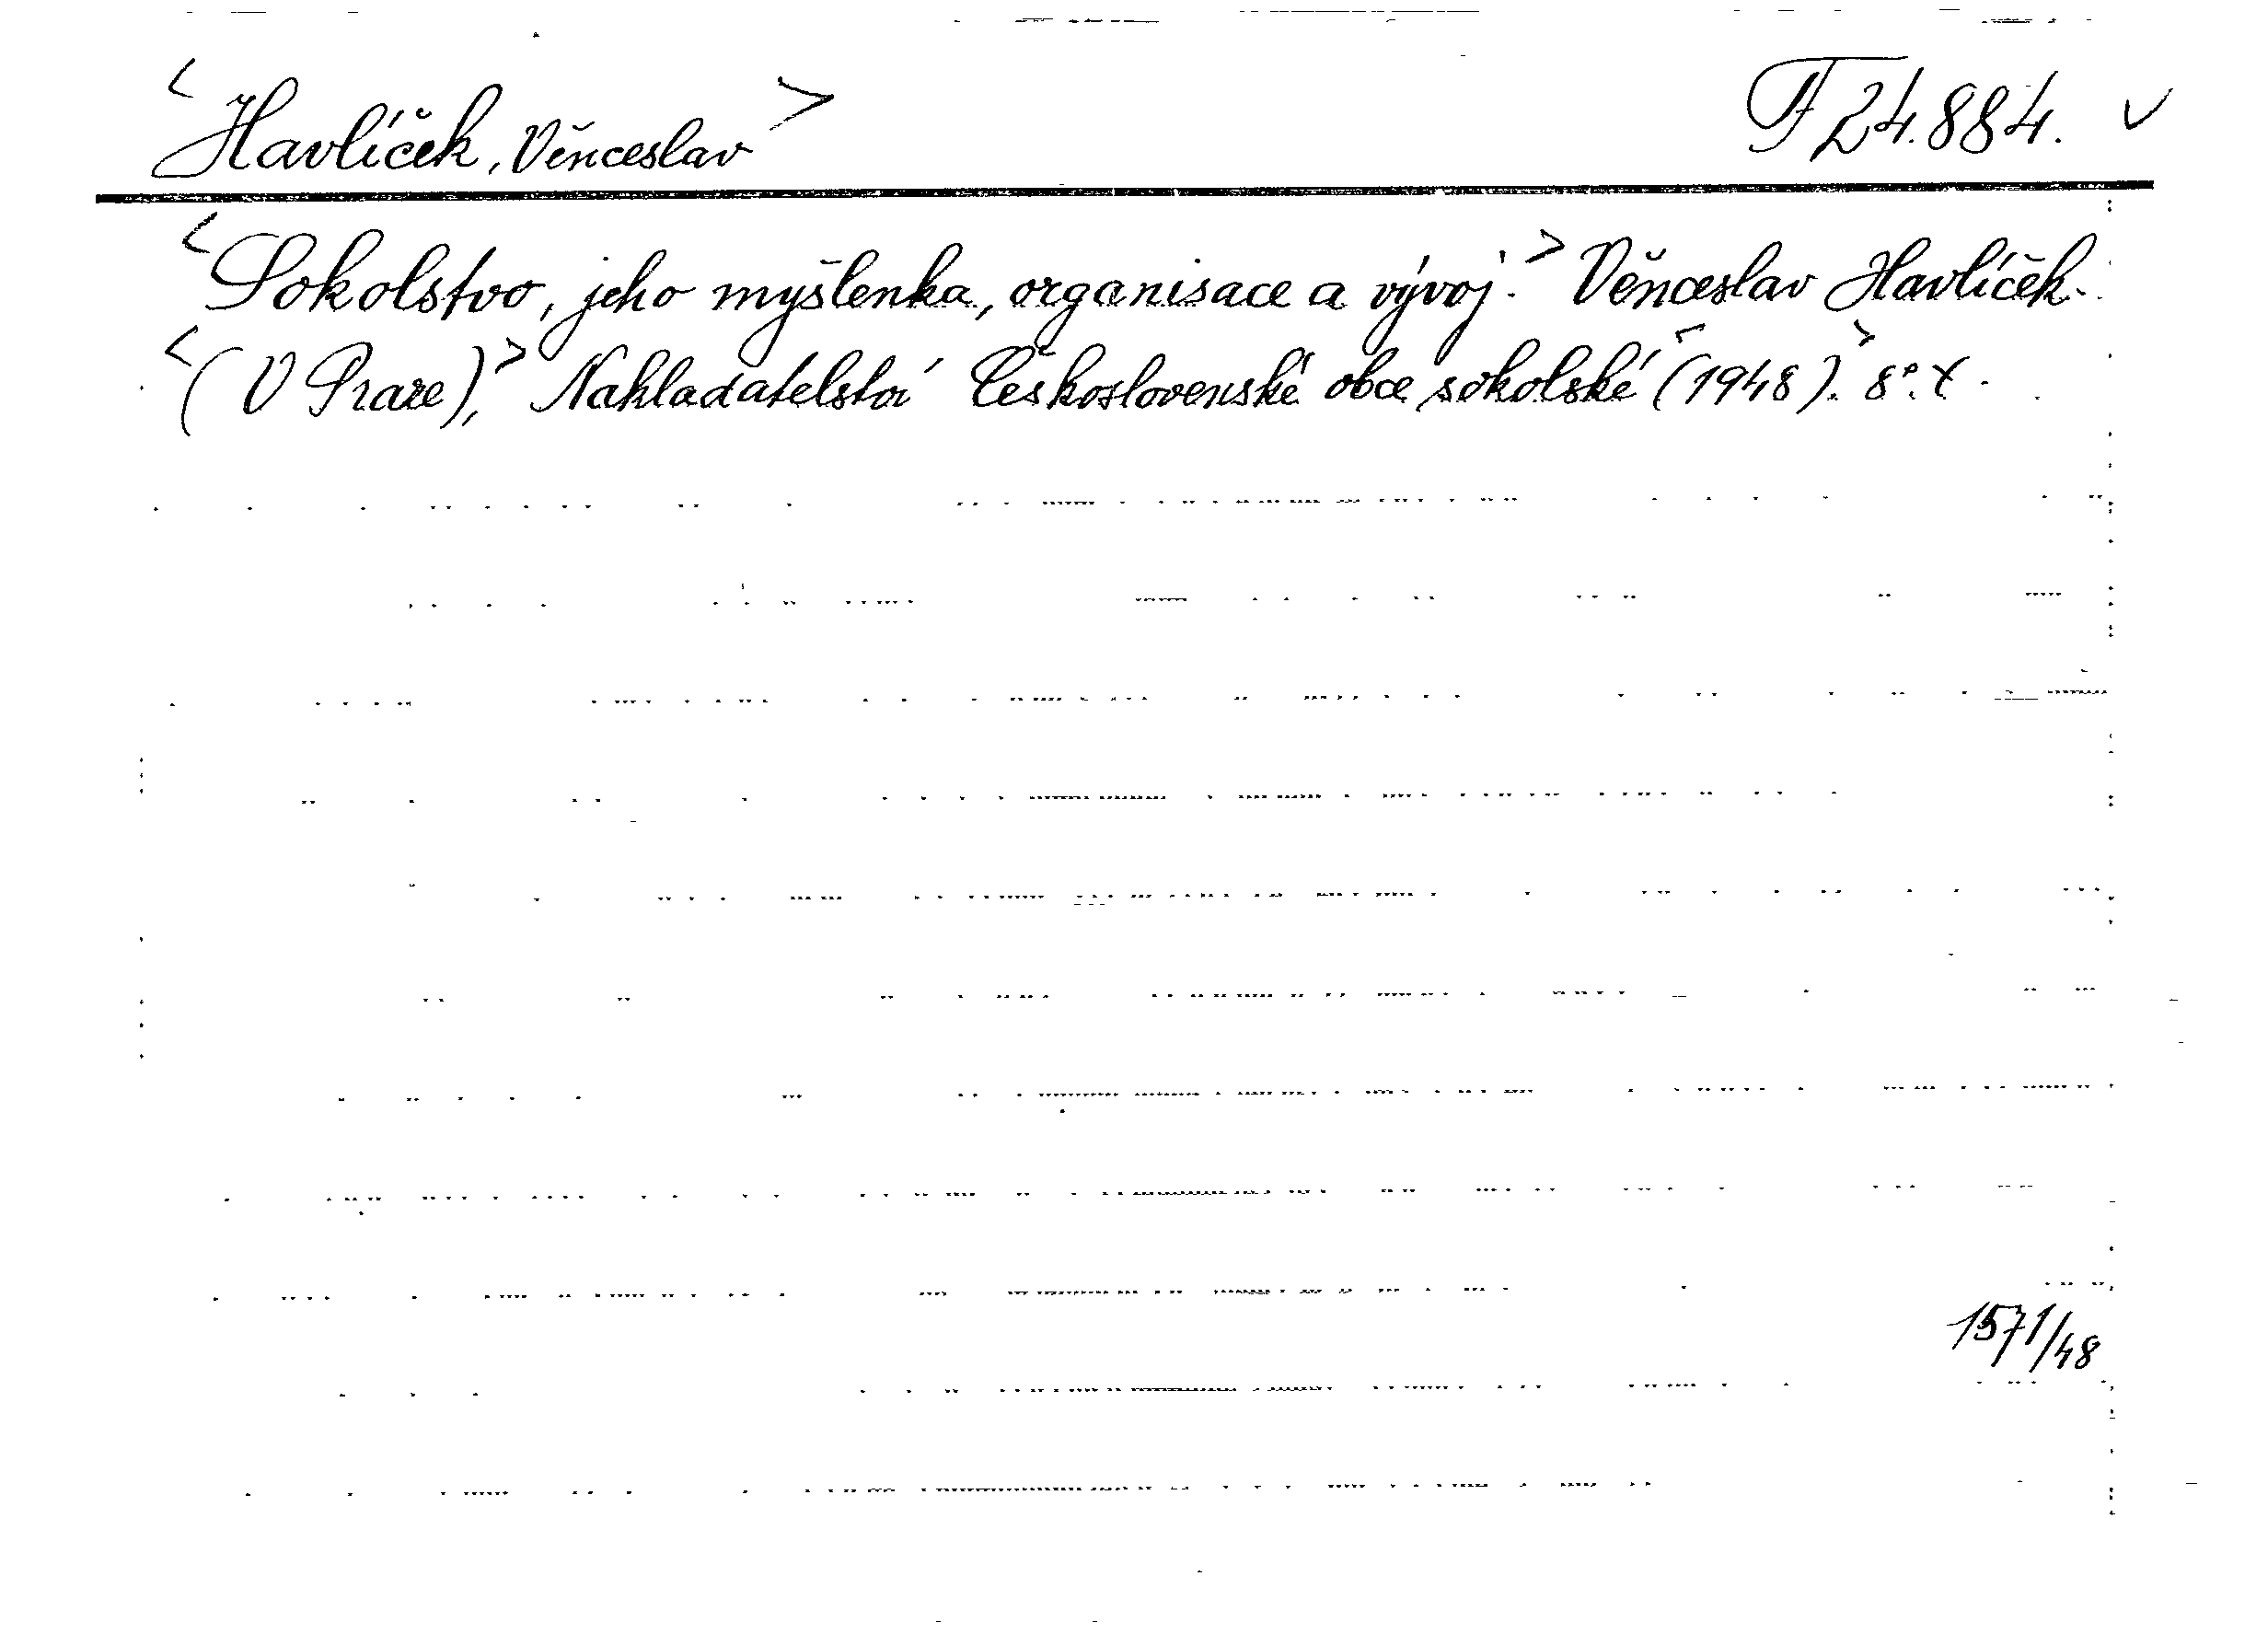 <Havlíček, Věnceslav> F 24.884. ✓
<Sokolstvo, jeho myšlenka, organisace a vývoj.> Věnceslav Havlíček.
<(V Praze),> Nakladatelství Československé obce sokolské <(1948).> 8°.
1571/48